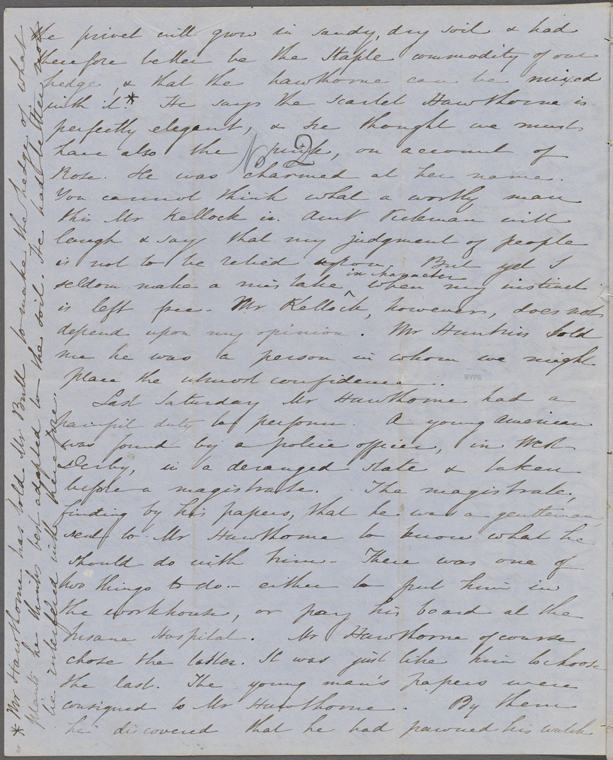 the privet will grow in sandy, dry soil & had
therefore better be the staple commodity of our
hedge, & that the hawthorne can be mixed
with it.* He says the scarlet Hawthorne is
perfectly elegant, & he thought we must
have also the pink, on account of
Rose. He was charmed at her name.
You cannot think what a worthy man
this Mr Kellock is. Aunt will
laugh & say that my judgment of people
is not to be relied upon. But yet I
seldom make a mistake in character when my instinct
is left free. Mr Kellock, however, does not
depend upon my opinion. Mr told
me he was a person in whom we might
place the utmost confidence.
Last Saturday Mr Hawthorne had a
painful duty to perform. A young American
was found by a police officer, in West
Derby, in a deranged state & taken
before a magistrate. The magistrate,
finding by his papers, that he was a gentleman
sent to Mr Hawthorne to know what he
should do with him. There was one of
two things to do - either to put him in
the workhouse, or pay his board at the
Insane Hospital. Mr Hawthorne of course
chose the latter. It was just like him to choose
the last. The young man's papers were
consigned to Mr Hawthorne. By them
he discovered that he had pawned his watch
No 2
NYPL
* Mr Hawthorne has told Mr Bull to make the hedge of what
plants he thinks best adapted to the soil. He had better not
be interfered with